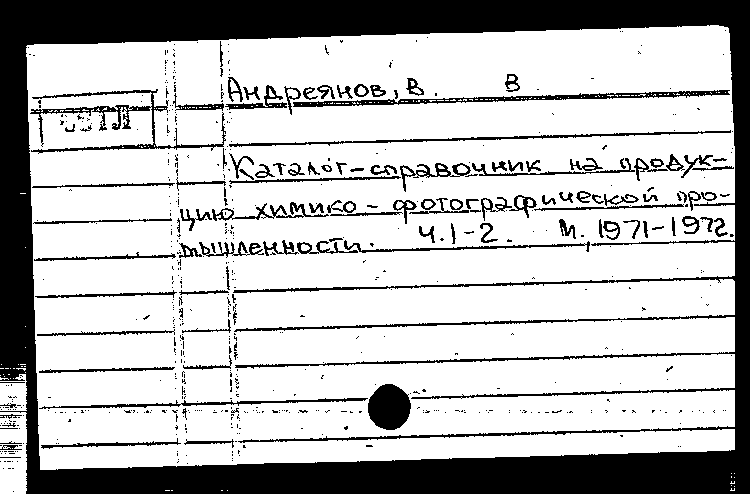 Андреянов, В. В
Каталог-справочник на продук-
цию химико-фотографической про-
мышленности. Ч.1-2. М., 1971-1972.